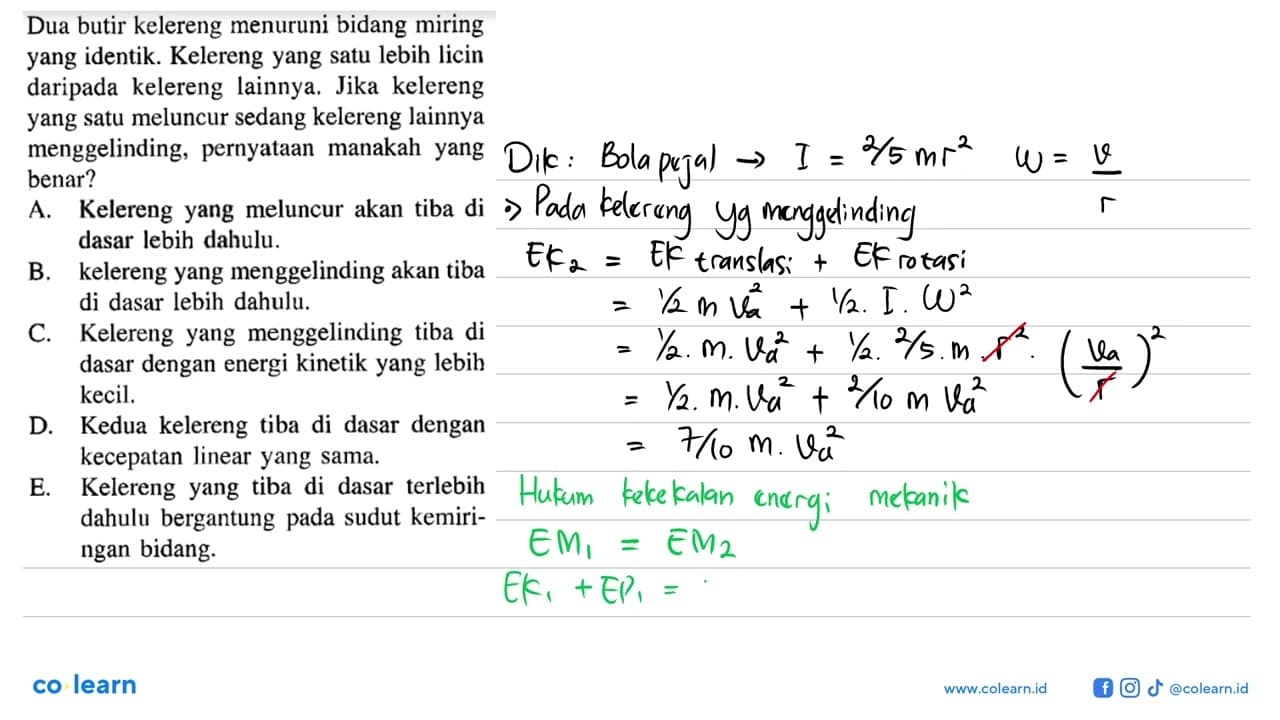 Dua butir kelereng menuruni bidang miring
yang identik. Kelereng yang satu lebih licin
daripada kelereng lainnya. Jika kelereng
yang satu meluncur sedang kelereng lainnya
menggelinding, pernyataan manakah yang
benar?
A. Kelereng yang meluncur akan tiba di
dasar lebih dahulu.
B. kelereng yang menggelinding akan tiba
di dasar lebih dahulu.
C. Kelereng yang menggelinding tiba di
dasar dengan energi kinetik yang lebih
kecil.
D. Kedua kelereng tiba di dasar dengan
kecepatan linear yang sama.
E. Kelereng yang tiba di dasar terlebih
dahulu bergantung pada sudut kemiri-
ngan bidang.
Dik : Bola pejal → I = 2/5 mr² ω = v/r
⇒ Pada kelereng yg menggelinding
EK₂ = EK translasi + EK rotasi
= 1/2 m va² + 1/2. I. ω²
= 1/2. m. va² + 1/2. 2/5. m. r². (va/r)²
= 1/2. m. va² + 2/10 m va²
= 7/10 m. va²
Hukum kekekalan energi mekanik
EM₁ = EM₂
EK₁ + EP₁ =
co learn
www.colearn.id
@colearn.id